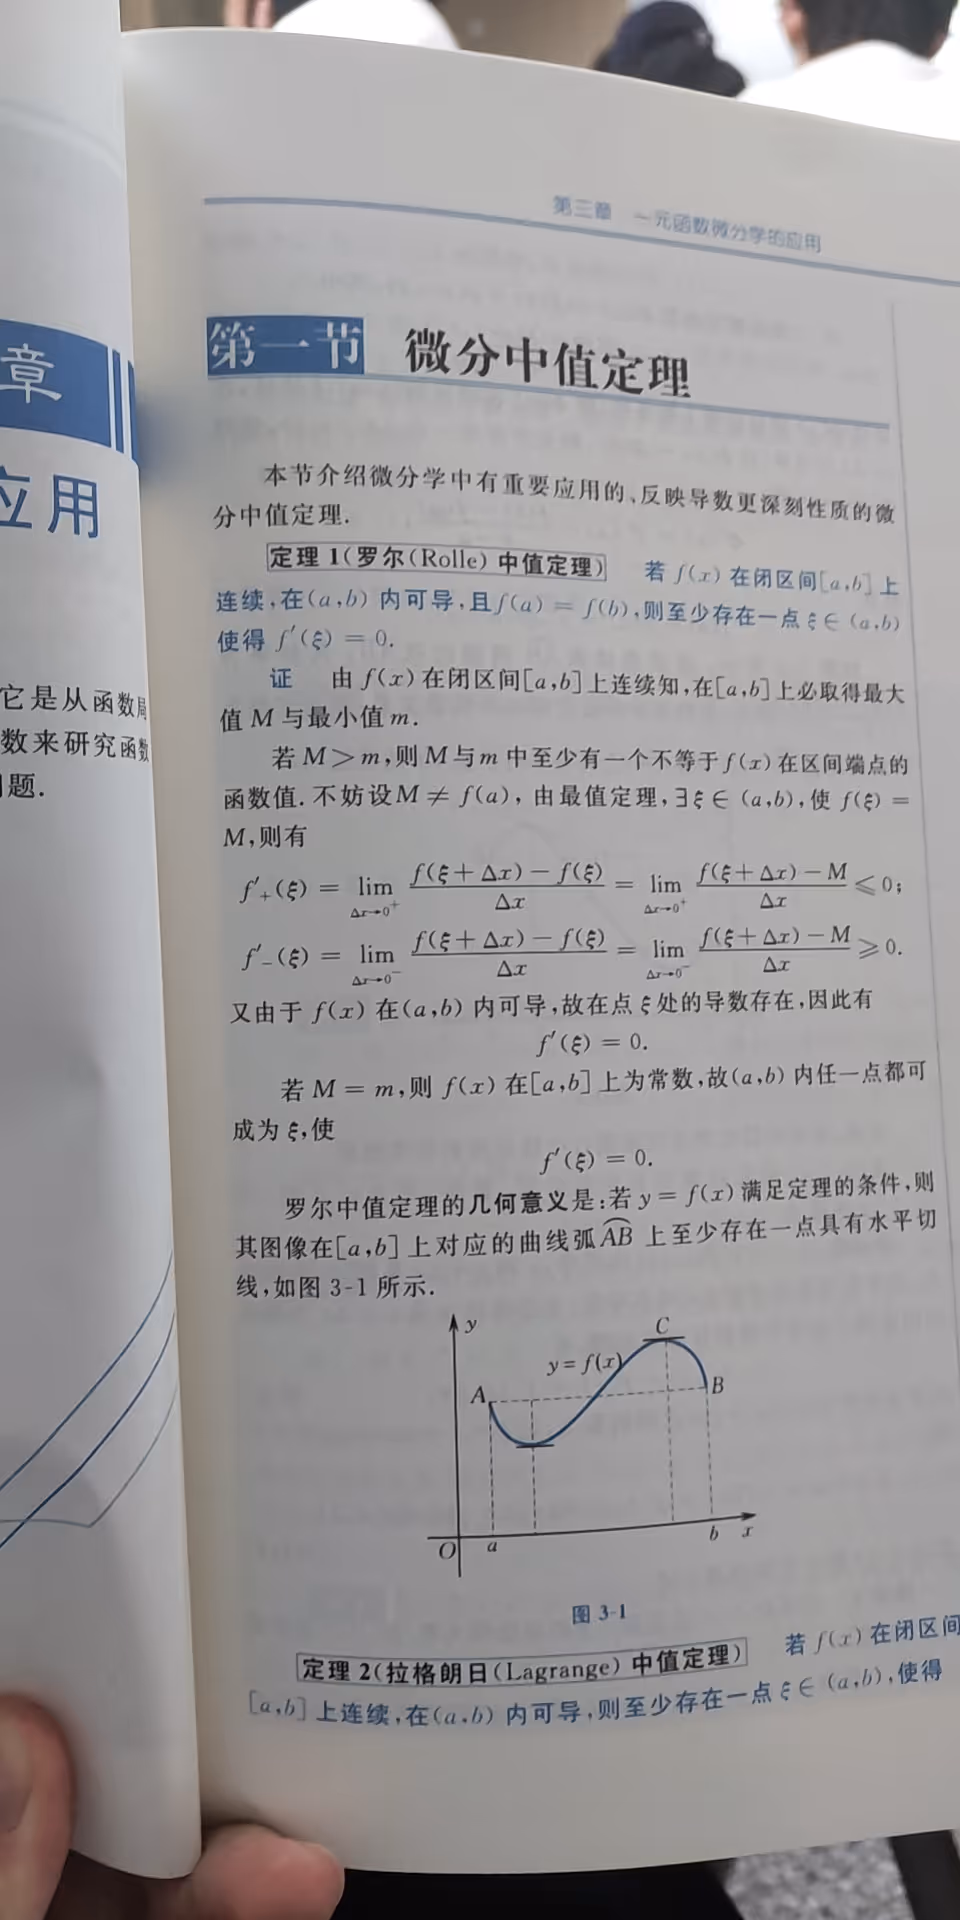 章
应用
它是从函数局
数来研究函数
题.
第三章 一元函数微分学的应用
第一节 微分中值定理
本节介绍微分学中有重要应用的、反映导数更深刻性质的微
分中值定理.
定理 1(罗尔(Rolle) 中值定理) 若 f(x) 在闭区间[a,b] 上
连续,在(a,b) 内可导,且f(a) = f(b),则至少存在一点 ξ∈ (a,b)
使得 f′(ξ) = 0.
证 由 f(x) 在闭区间[a,b]上连续知,在[a,b]上必取得最大
值 M 与最小值 m.
若 M > m,则 M 与 m 中至少有一个不等于 f(x) 在区间端点的
函数值. 不妨设M ≠ f(a), 由最值定理,∃ξ∈ (a,b),使 f(ξ) =
M,则有
f′₊(ξ) = lim_{Δx→0⁺} (f(ξ+Δx) − f(ξ))/Δx = lim_{Δx→0⁺} (f(ξ+Δx) − M)/Δx ⩽ 0;
f′₋(ξ) = lim_{Δx→0⁻} (f(ξ+Δx) − f(ξ))/Δx = lim_{Δx→0⁻} (f(ξ+Δx) − M)/Δx ⩾ 0.
又由于 f(x) 在(a,b) 内可导,故在点 ξ 处的导数存在,因此有
f′(ξ) = 0.
若 M = m,则 f(x) 在[a,b] 上为常数,故(a,b) 内任一点都可
成为 ξ,使
f′(ξ) = 0.
罗尔中值定理的几何意义是:若 y = f(x) 满足定理的条件,则
其图像在[a,b] 上对应的曲线弧AB 上至少存在一点具有水平切
线,如图 3-1 所示.
y
C
y = f(x)
A
B
O
a
b
x
图 3-1
定理 2(拉格朗日(Lagrange) 中值定理) 若 f(x) 在闭区间
[a,b] 上连续,在(a,b) 内可导,则至少存在一点 ξ∈ (a,b),使得